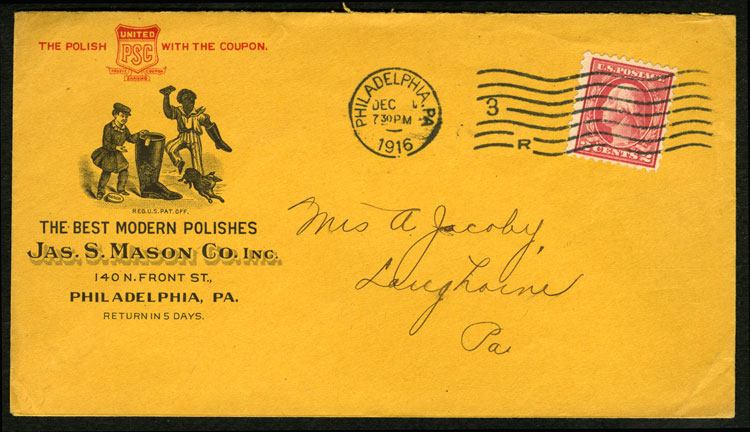 THE POLISH UNITED PSC WITH THE COUPON.
REG. U.S. PAT. OFF.
THE BEST MODERN POLISHES
JAS. S. MASON CO. INC.
140 N. FRONT ST.,
PHILADELPHIA, PA.
RETURN IN 5 DAYS.
PHILADELPHIA, PA.
DEC
7 30 PM
1916
3
R
U.S. POSTAGE
2 CENTS 2
Mrs A. Jacoby,
Langhorne
Pa